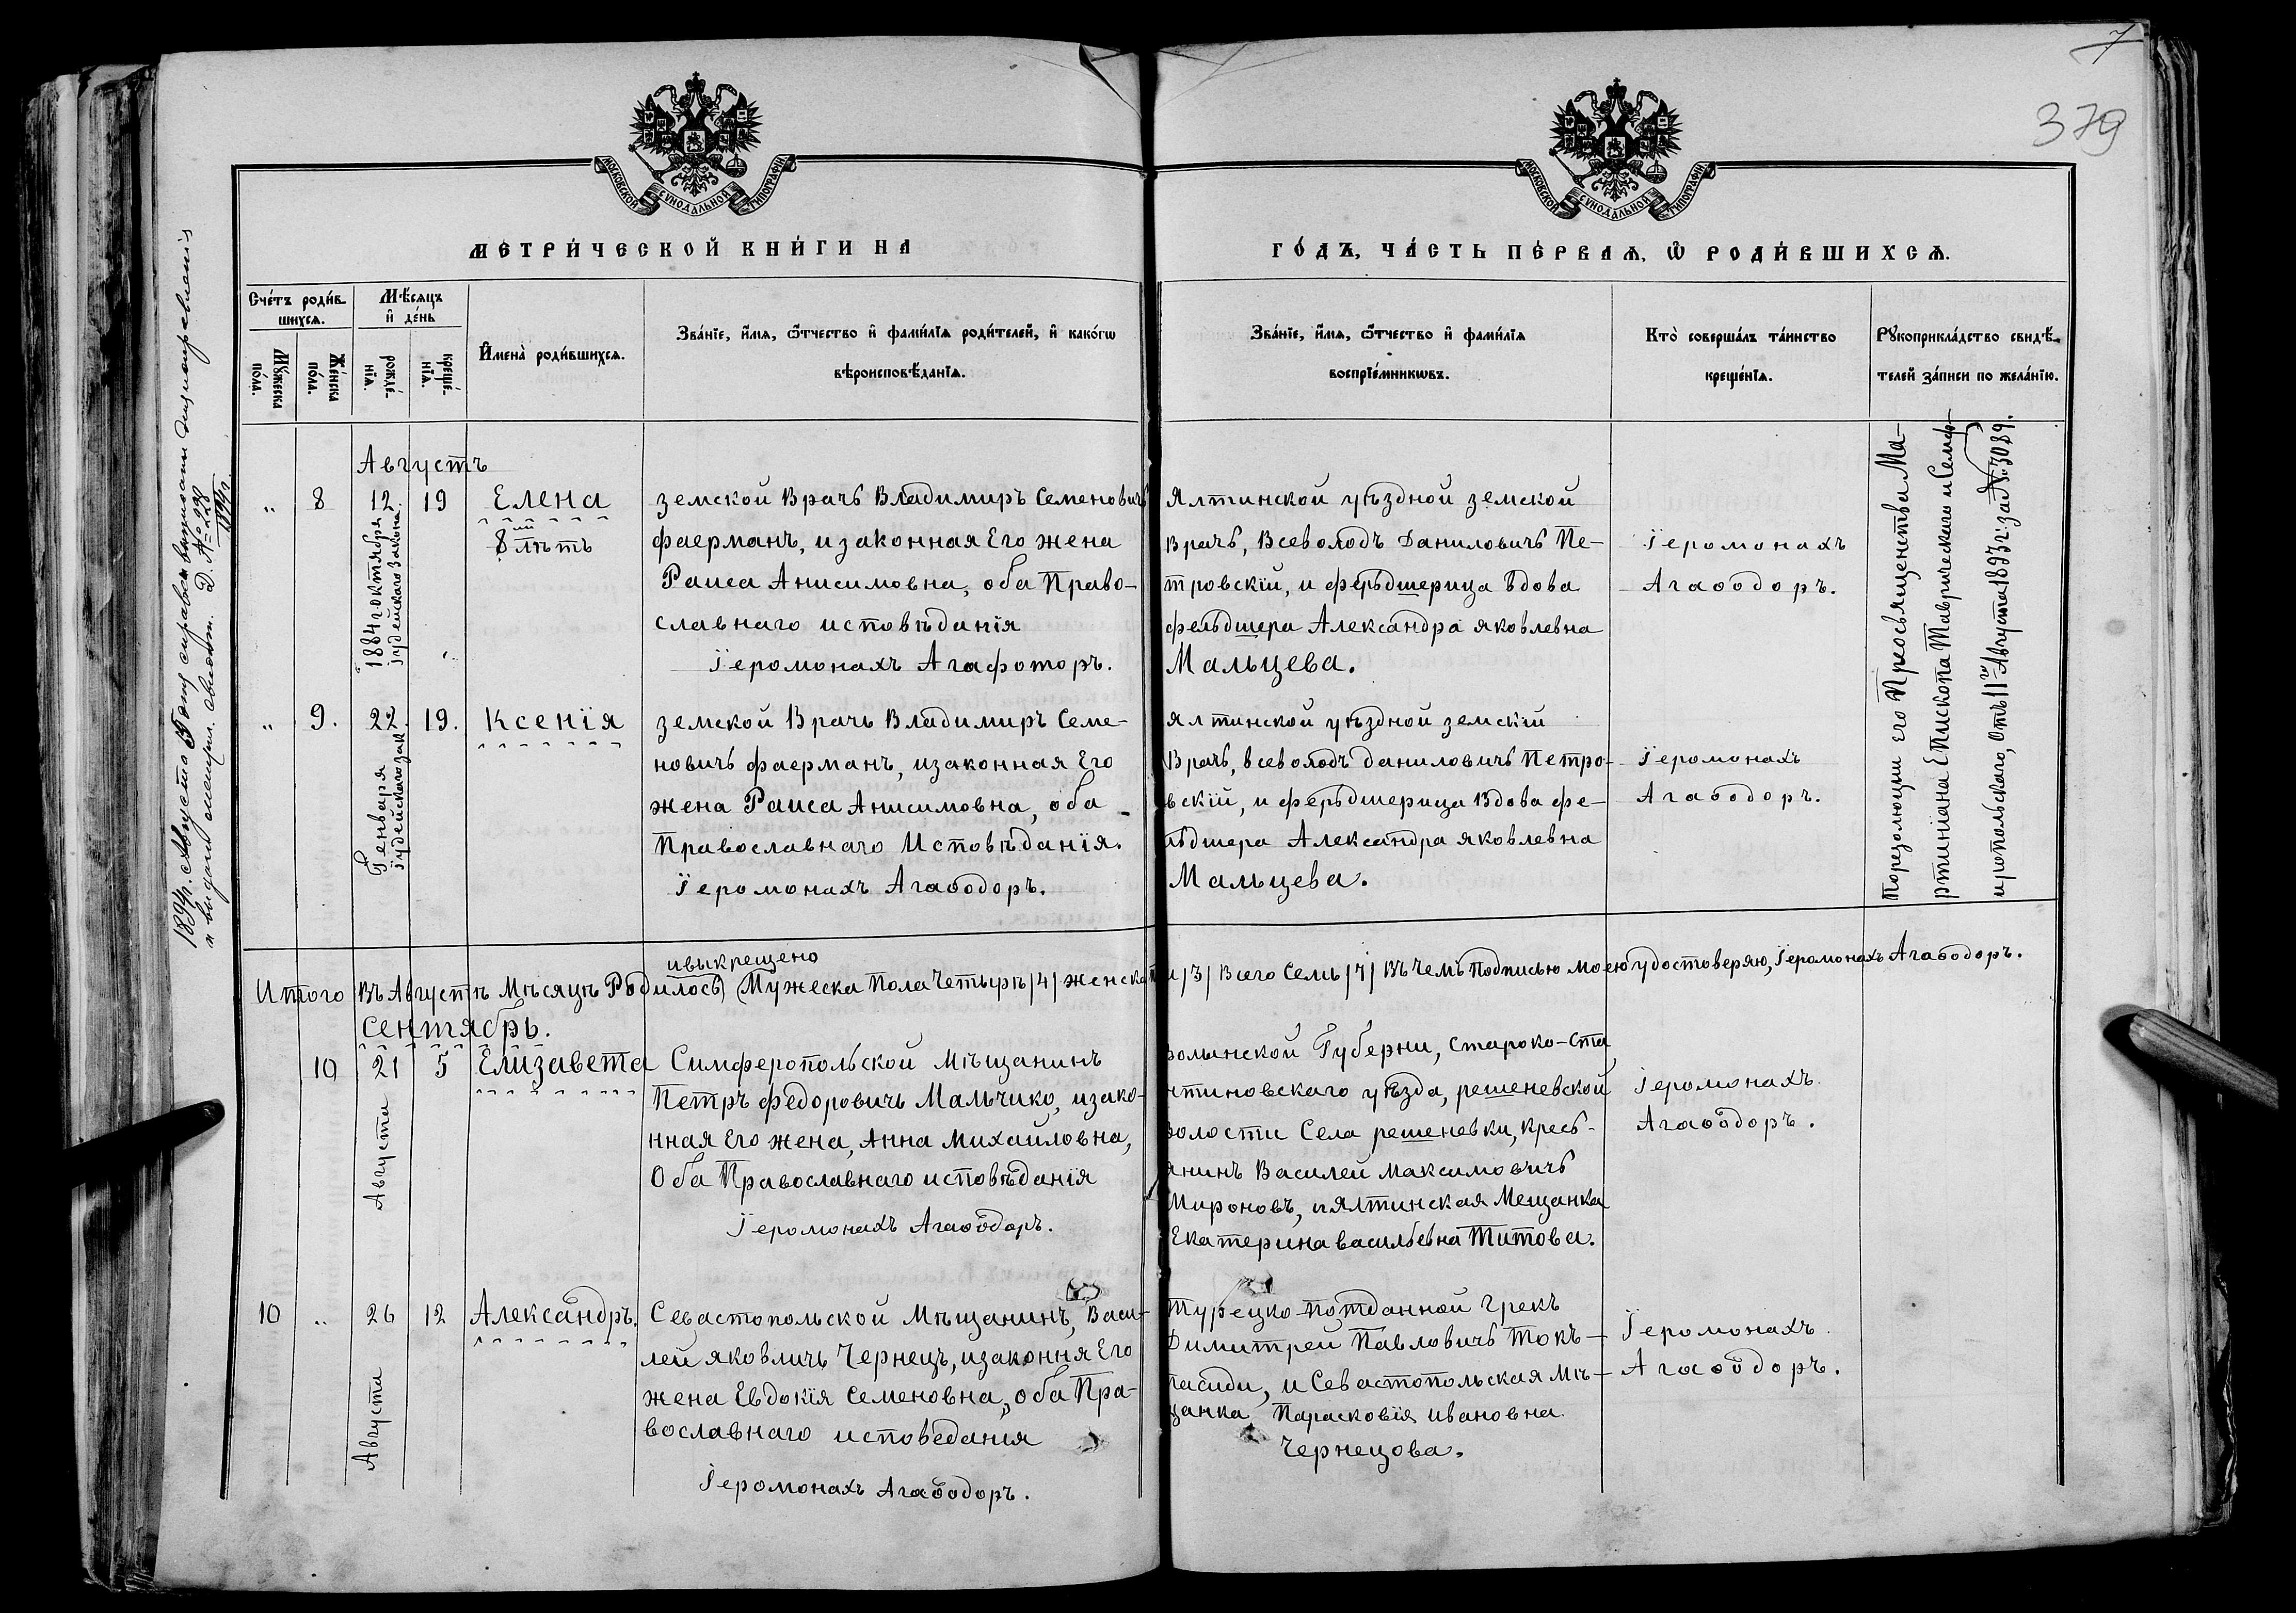 7
379
МОСКОВСКОЙ СѴНОДАЛЬНОЙ ТИПОГРАФІИ
МОСКОВСКОЙ СѴНОДАЛЬНОЙ ТИПОГРАФІИ
МЕТРИ́ЧЕСКОЙ КНИ́ГИ НА
ГО́ДЪ, ЧА́СТЬ ПЕ́РВАѦ, Ѡ҆ РОДИ́ВШИХСѦ.
Сче́тъ роди́в-
шихсѧ.
Мꙋ́жеска
по́ла.
Же́нска
по́ла.
Мѣ́сѧцъ
и҆ де́нь
рожде́-
нїѧ.
креще́-
нїѧ.
И҆мена̀ роди́вшихсѧ.
Зва́нїе, и҆́мѧ, ѻ҆́тчество и҆ фами́лїѧ роди́телей, и҆ како́гѡ
вѣроисповѣ́данїѧ.
Зва́нїе, и҆́мѧ, ѻ҆́тчество и҆ фами́лїѧ
воспрїе́мникѡвъ.
Кто̀ соверша́лъ та́инство
креще́нїѧ.
Рꙋкоприкла́дство свидѣ́-
телей за́писи по жела́нїю.
1894г. Августа 5 дня справка
и выдано метрич. свидет.
1894г.
Августъ
„ 8 12 19 Елена
8ми лѣтъ
1884г октября
іудейскаго закона.
земской Врачъ Владимиръ Семеновичъ
фаерманъ, и законная Его жена
Раиса Анисимовна, оба Право-
славнаго исповѣданія
Іеромонахъ Агафоторъ.
Ялтинской уѣздной земской
Врачъ, Всеволодъ Даниловичъ Пе-
тровскій, и ферьдшерица Вдова
фельдшера Александра яковлевна
Мальцева.
Іеромонахъ
Агаѳодоръ.
Порезолюции Его Преосвященства Ма-
ртиніана Епископа Таврическаго и Симф-
иропольскаго, Отъ 11й Августа 1893г: за № 3089.
„ 9. 22. 19. Ксенія
Генваря
іудейскаго зак
земской Врачъ Владимиръ Семе-
новичъ фаерманъ, изаконная Его
жена Раиса Анисимовна, оба
Православнаго Исповѣданія.
Іеромонахъ Агаѳодоръ.
ялтинской уѣздной земскій
Врачъ, всеволодъ даниловичъ Петро-
вскій, и ферьдшерица Вдова фе-
льдшера Александра яковлевна
Мальцева.
Іеромонахъ
Агаѳодоръ.
ивыкрещено
Итого Въ Августѣ Мѣсяцѣ Родилось Мужеска Пола Четырѣ /4/ женска /3/ Всего Семь /7/ Въ Чемъ Подписью Моею удостоверяю, Іеромонахъ Агаѳодоръ.
Сентябрь.
10 21 5 Елизавета
Августа
Симферопольской Мѣщанинъ
Петръ федоровичъ Мальчико, изако-
нная Его жена, Анна Михаиловна,
Оба Православнаго исповѣданія
Іеромонахъ Агаѳодоръ.
волынской Губерни, Староко-Ста
нтиновскаго уѣзда, решеневской
волости Села решеневки, Кресь-
янинъ Василей Максимовичъ
Мироновъ, и Ялтинская Мещанка
Екатерина васильевна Титова.
Іеромонахъ
Агаѳодоръ.
10 „ 26 12 Александръ.
Августа
Севастопольской Мѣщанинъ, Васи-
лей яковличь Чернецъ, изаконня Его
жена Евдокія Семеновна, оба Пра-
вославнаго исповеданія
Іеромонахъ Агаѳодоръ.
Турецко-потданной Грекъ
Димитрей Павловичъ Токъ-
пасиди, и Севастопольская Мѣ-
щанка Парасковія ивановна
Чернецова.
Іеромонахъ
Агаѳодоръ.